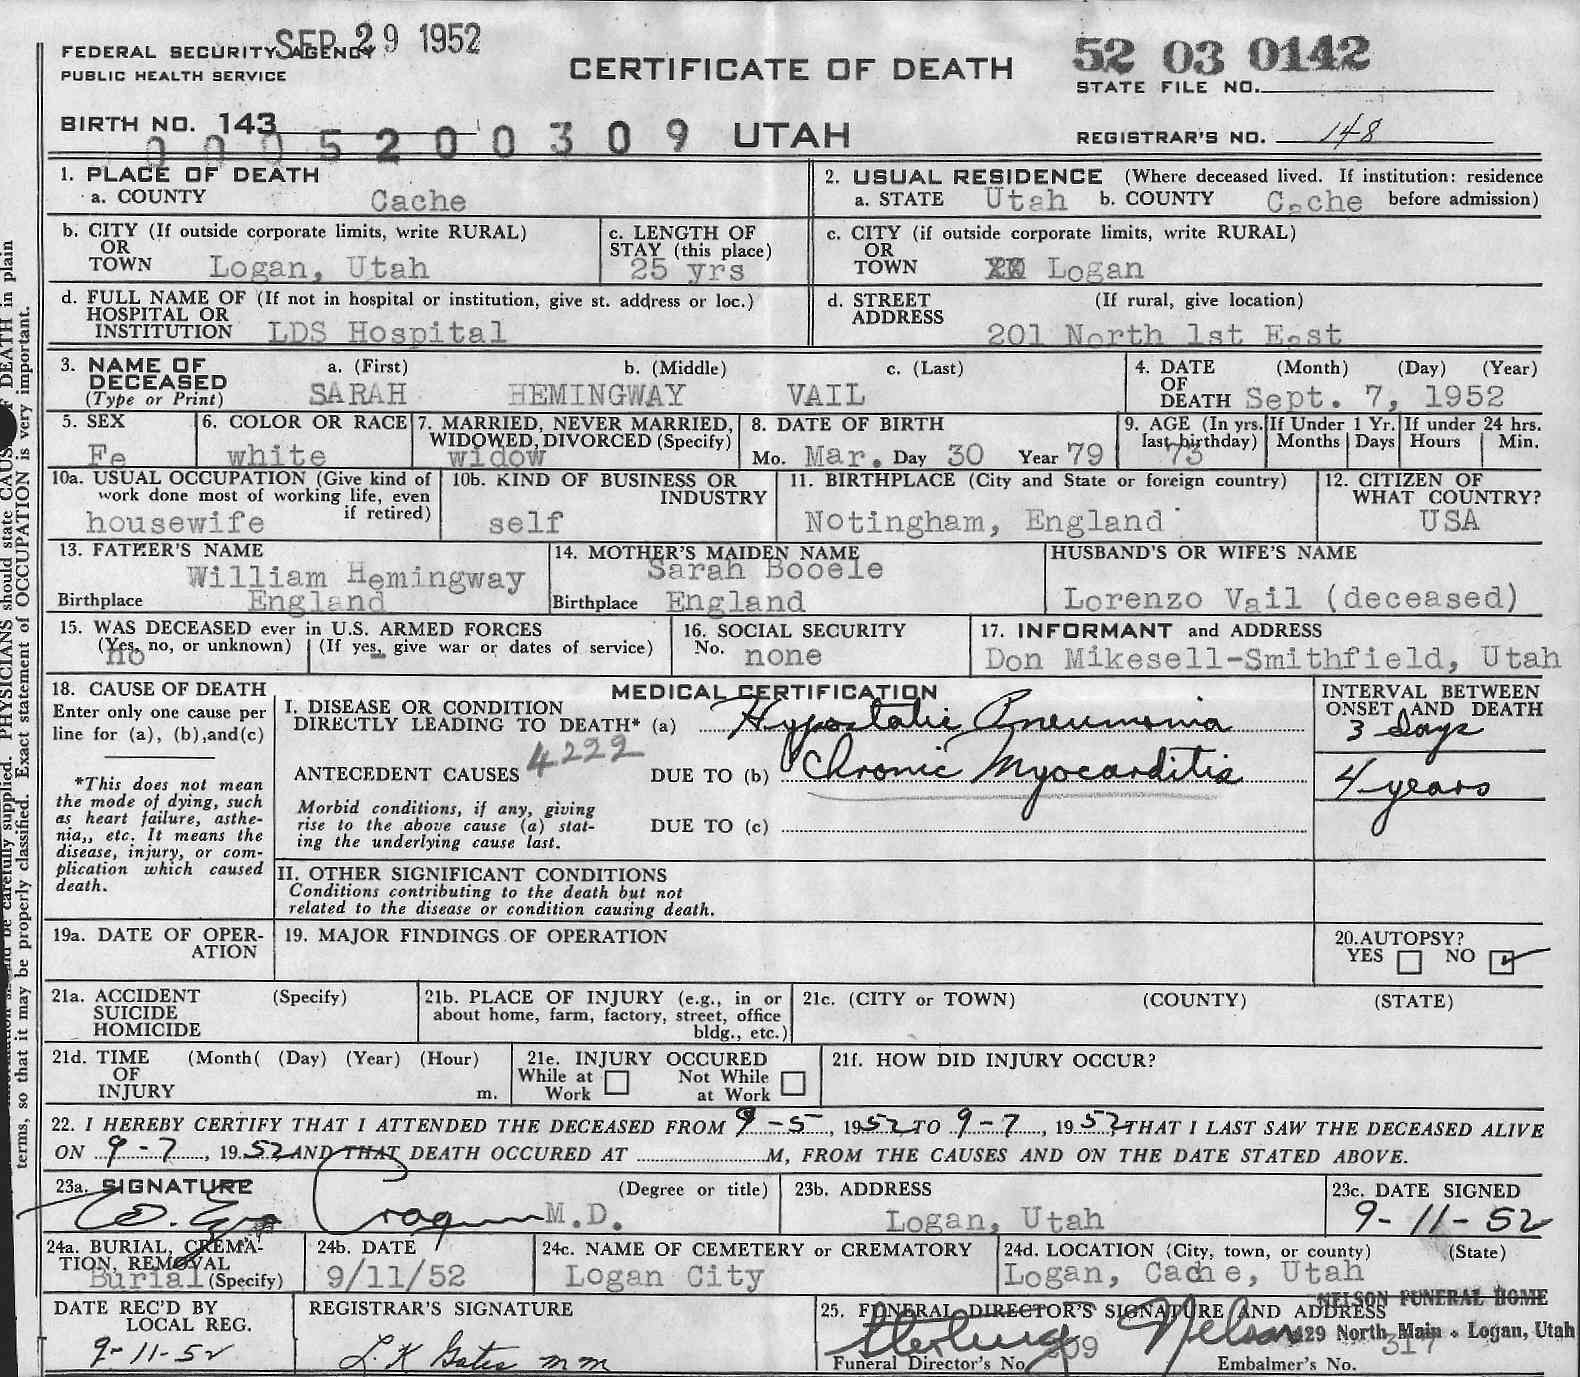 SEP 29 1952
FEDERAL SECURITY AGENCY
PUBLIC HEALTH SERVICE
CERTIFICATE OF DEATH
52 03 0142
STATE FILE NO.
BIRTH NO. 143
0005200309
UTAH
REGISTRAR'S NO. 148
1. PLACE OF DEATH
a. COUNTY Cache
2. USUAL RESIDENCE (Where deceased lived. If institution: residence
a. STATE Utah b. COUNTY Cache before admission)
b. CITY (If outside corporate limits, write RURAL)
OR
TOWN Logan, Utah
c. LENGTH OF
STAY (this place)
25 yrs
c. CITY (if outside corporate limits, write RURAL)
OR
TOWN Logan
d. FULL NAME OF (If not in hospital or institution, give st. address or loc.)
HOSPITAL OR
INSTITUTION LDS Hospital
d. STREET (If rural, give location)
ADDRESS
201 North 1st East
3. NAME OF a. (First) b. (Middle) c. (Last)
DECEASED
(Type or Print) SARAH HEMINGWAY VAIL
4. DATE (Month) (Day) (Year)
OF
DEATH Sept. 7, 1952
5. SEX
Fe
6. COLOR OR RACE
white
7. MARRIED, NEVER MARRIED,
WIDOWED, DIVORCED (Specify)
widow
8. DATE OF BIRTH
Mo. Mar. Day 30 Year 79
9. AGE (In yrs.
last birthday)
73
If Under 1 Yr.
Months Days
If under 24 hrs.
Hours Min.
10a. USUAL OCCUPATION (Give kind of
work done most of working life, even
if retired)
housewife
10b. KIND OF BUSINESS OR
INDUSTRY
self
11. BIRTHPLACE (City and State or foreign country)
Notingham, England
12. CITIZEN OF
WHAT COUNTRY?
USA
13. FATHER'S NAME
William Hemingway
Birthplace England
14. MOTHER'S MAIDEN NAME
Sarah Booele
Birthplace England
HUSBAND'S OR WIFE'S NAME
Lorenzo Vail (deceased)
15. WAS DECEASED ever in U.S. ARMED FORCES
(Yes, no, or unknown) (If yes, give war or dates of service)
no
16. SOCIAL SECURITY
No. none
17. INFORMANT and ADDRESS
Don Mikesell-Smithfield, Utah
18. CAUSE OF DEATH
Enter only one cause per
line for (a), (b), and(c)
*This does not mean
the mode of dying, such
as heart failure, asthe-
nia,, etc. It means the
disease, injury, or com-
plication which caused
death.
MEDICAL CERTIFICATION
I. DISEASE OR CONDITION
DIRECTLY LEADING TO DEATH* (a) Hypostatic Pneumonia
4222
ANTECEDENT CAUSES DUE TO (b) Chronic Myocarditis
Morbid conditions, if any, giving
rise to the above cause (a) stat-
ing the underlying cause last.
DUE TO (c)
INTERVAL BETWEEN
ONSET AND DEATH
3 days
4 years
II. OTHER SIGNIFICANT CONDITIONS
Conditions contributing to the death but not
related to the disease or condition causing death.
19a. DATE OF OPER-
ATION
19. MAJOR FINDINGS OF OPERATION
20.AUTOPSY?
YES NO
21a. ACCIDENT (Specify)
SUICIDE
HOMICIDE
21b. PLACE OF INJURY (e.g., in or
about home, farm, factory, street, office
bldg., etc.)
21c. (CITY or TOWN) (COUNTY) (STATE)
21d. TIME (Month( (Day) (Year) (Hour)
OF
INJURY m.
21e. INJURY OCCURED
While at Work Not While at Work
21f. HOW DID INJURY OCCUR?
22. I HEREBY CERTIFY THAT I ATTENDED THE DECEASED FROM 9-5, 1952, TO 9-7, 1952, THAT I LAST SAW THE DECEASED ALIVE
ON 9-7, 1952 AND THAT DEATH OCCURED AT M, FROM THE CAUSES AND ON THE DATE STATED ABOVE.
23a. SIGNATURE (Degree or title)
M.D.
23b. ADDRESS
Logan, Utah
23c. DATE SIGNED
9-11-52
24a. BURIAL, CREMA-
TION, REMOVAL
Burial (Specify)
24b. DATE
9/11/52
24c. NAME OF CEMETERY or CREMATORY
Logan City
24d. LOCATION (City, town, or county) (State)
Logan, Cache, Utah
DATE REC'D BY
LOCAL REG.
9-11-52
REGISTRAR'S SIGNATURE
25. FUNERAL DIRECTOR'S SIGNATURE AND ADDRESS
NELSON FUNERAL HOME
Sterling Nelson
North Main - Logan, Utah
Funeral Director's No.
Embalmer's No. 317